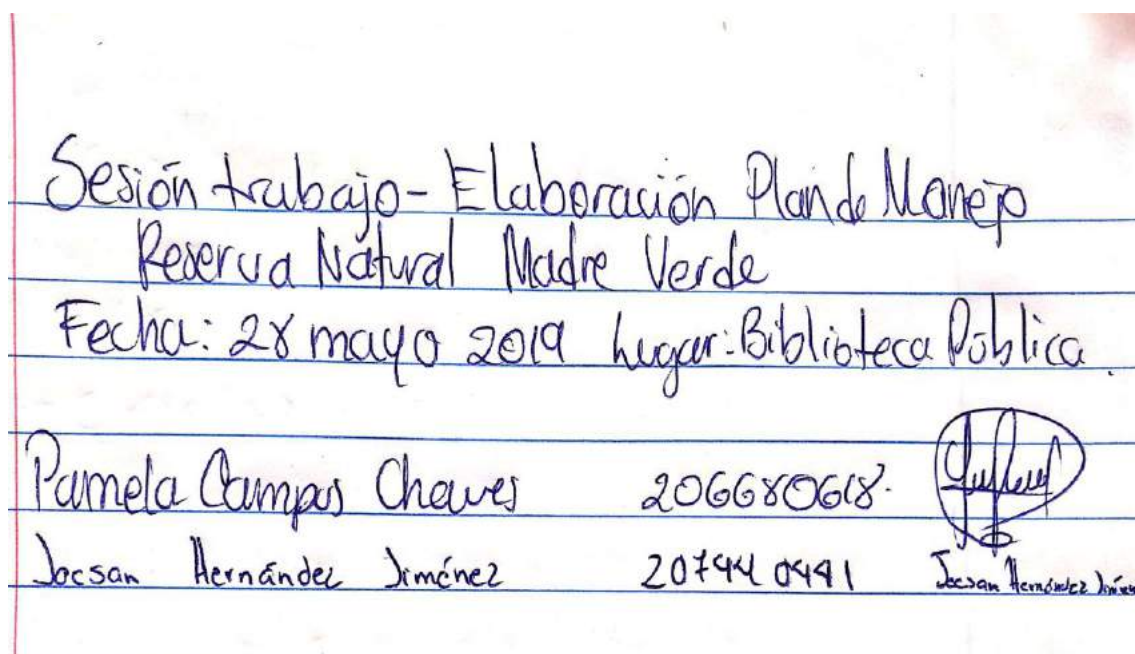 Sesión trabajo - Elaboración Plan de Manejo
Reserva Natural Madre Verde
Fecha: 28 mayo 2019 Lugar: Biblioteca Pública.
Pamela Campos Chaves 206680618.
Jocsan Hernández Jiménez 207440441 Jocsan Hernández Jiménez